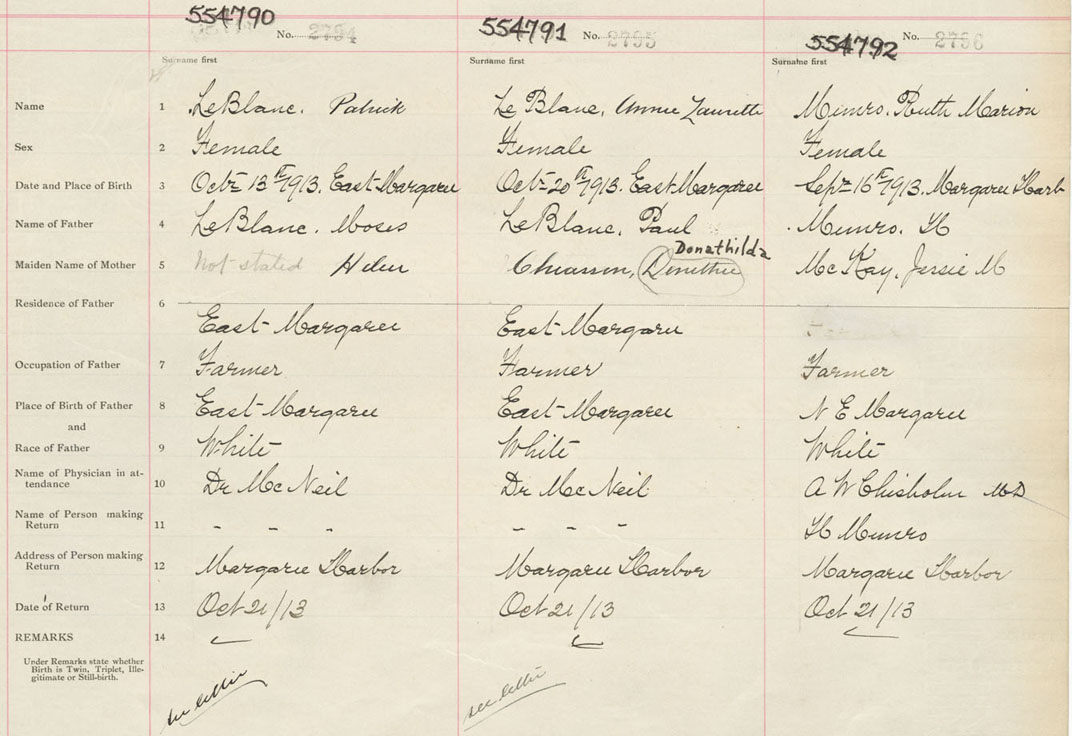 554790 554791 554792
No. 2794 No. 2795 No. 2796
Surname first Surname first Surname first
Name 1 LeBlanc. Patrick Le Blanc, Annie Laurette Munro. Ruth Marion
Sex 2 Female Female Female
Date and Place of Birth 3 Oct 13th 1913. East Margaree Oct 20th 1913. East Margaree Sept 16th 1913. Margaree Harb
Name of Father 4 LeBlanc. Moses LeBlanc, Paul Munro. H
Donathilda
Maiden Name of Mother 5 Not stated Helen Chiasson, Mc Kay, Jessie M
Residence of Father 6
East Margaree East Margaree
Occupation of Father 7 Farmer Farmer Farmer
Place of Birth of Father 8 East Margaree East Margaree N E Margaree
and
Race of Father 9 White White White
Name of Physician in at-
tendance 10 Dr McNeil Dr McNeil A W Chisholm MD
Name of Person making
Return 11 - - - - - - H Munro
Address of Person making
Return 12 Margaree Harbor Margaree Harbor Margaree Harbor
Date of Return 13 Oct 21/13 Oct 21/13 Oct 21/13
REMARKS 14
Under Remarks state whether
Birth is Twin, Triplet, Ille-
gitimate or Still-birth.
see letter see letter